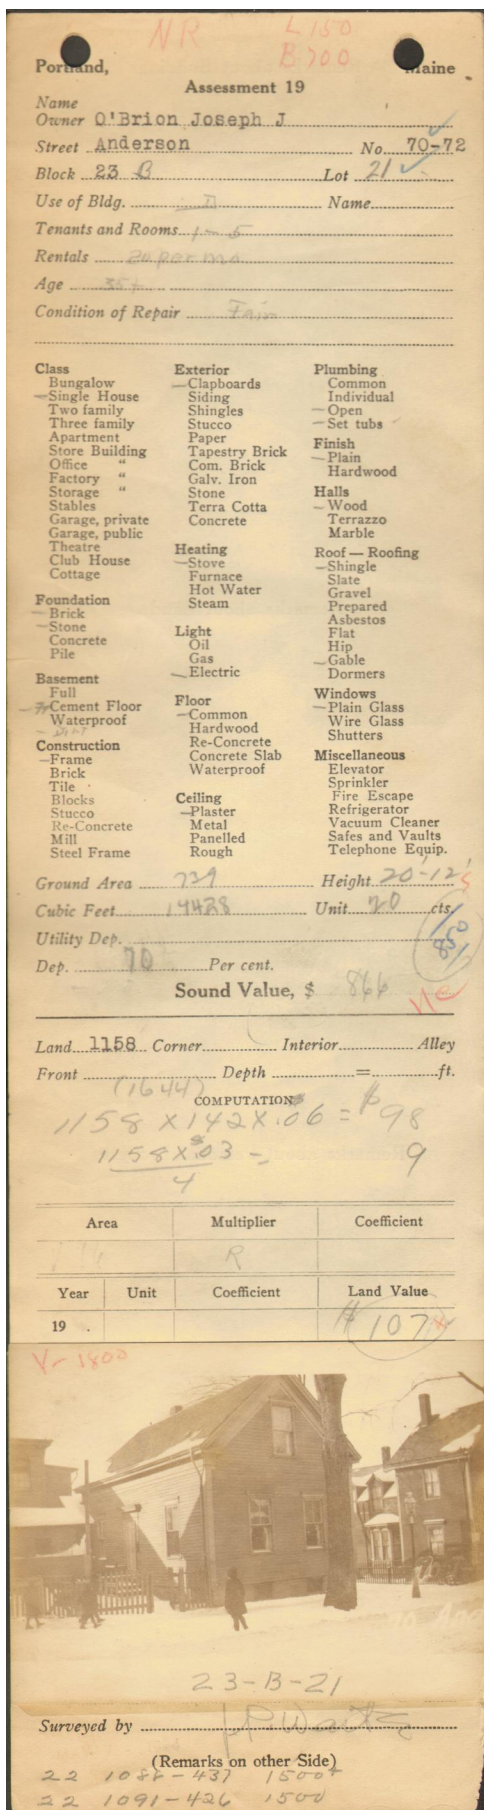 NR L 150
B 700
Portland, Maine
Assessment 19
Name
Owner O'Brion Joseph J
Street Anderson No. 70-72
Block 23 B Lot 21
Use of Bldg. D Name
Tenants and Rooms 1-5
Rentals 20 per mo
Age 35+
Condition of Repair Fair
Class
Bungalow
Single House
Two family
Three family
Apartment
Store Building
Office "
Factory "
Storage "
Stables
Garage, private
Garage, public
Theatre
Club House
Cottage
Foundation
Brick
Stone
Concrete
Pile
Basement
Full
Cement Floor
Waterproof
Construction
Frame
Brick
Tile
Blocks
Stucco
Re-Concrete
Mill
Steel Frame
Exterior
Clapboards
Siding
Shingles
Stucco
Paper
Tapestry Brick
Com. Brick
Galv. Iron
Stone
Terra Cotta
Concrete
Heating
Stove
Furnace
Hot Water
Steam
Light
Oil
Gas
Electric
Floor
Common
Hardwood
Re-Concrete
Concrete Slab
Waterproof
Ceiling
Plaster
Metal
Panelled
Rough
Plumbing
Common
Individual
Open
Set tubs
Finish
Plain
Hardwood
Halls
Wood
Terrazzo
Marble
Roof — Roofing
Shingle
Slate
Gravel
Prepared
Asbestos
Flat
Hip
Gable
Dormers
Windows
Plain Glass
Wire Glass
Shutters
Miscellaneous
Elevator
Sprinkler
Fire Escape
Refrigerator
Vacuum Cleaner
Safes and Vaults
Telephone Equip.
Ground Area 739 Height 20'-12'
Cubic Feet 14428 Unit 20 cts.
Utility Dep. 850
Dep. 70 Per cent.
Sound Value, $ 866
Land 1158 Corner Interior Alley
Front Depth = ft.
(1644) COMPUTATION
1158 X 142 X .06 = $98
1158 X .03 = 9
4
Area Multiplier Coefficient
R
Year Unit Coefficient Land Value
19 . $107
Vr 1800
23-B-21
Surveyed by J.P. Waite
(Remarks on other Side)
22 1086-437 1500+
22 1091-426 1500